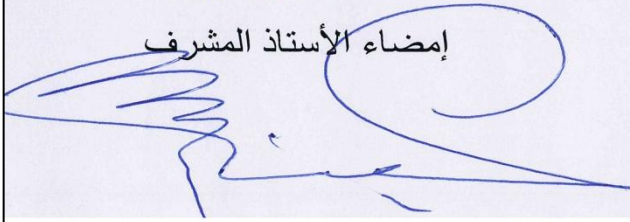 إمضاء الأستاذ المشرف